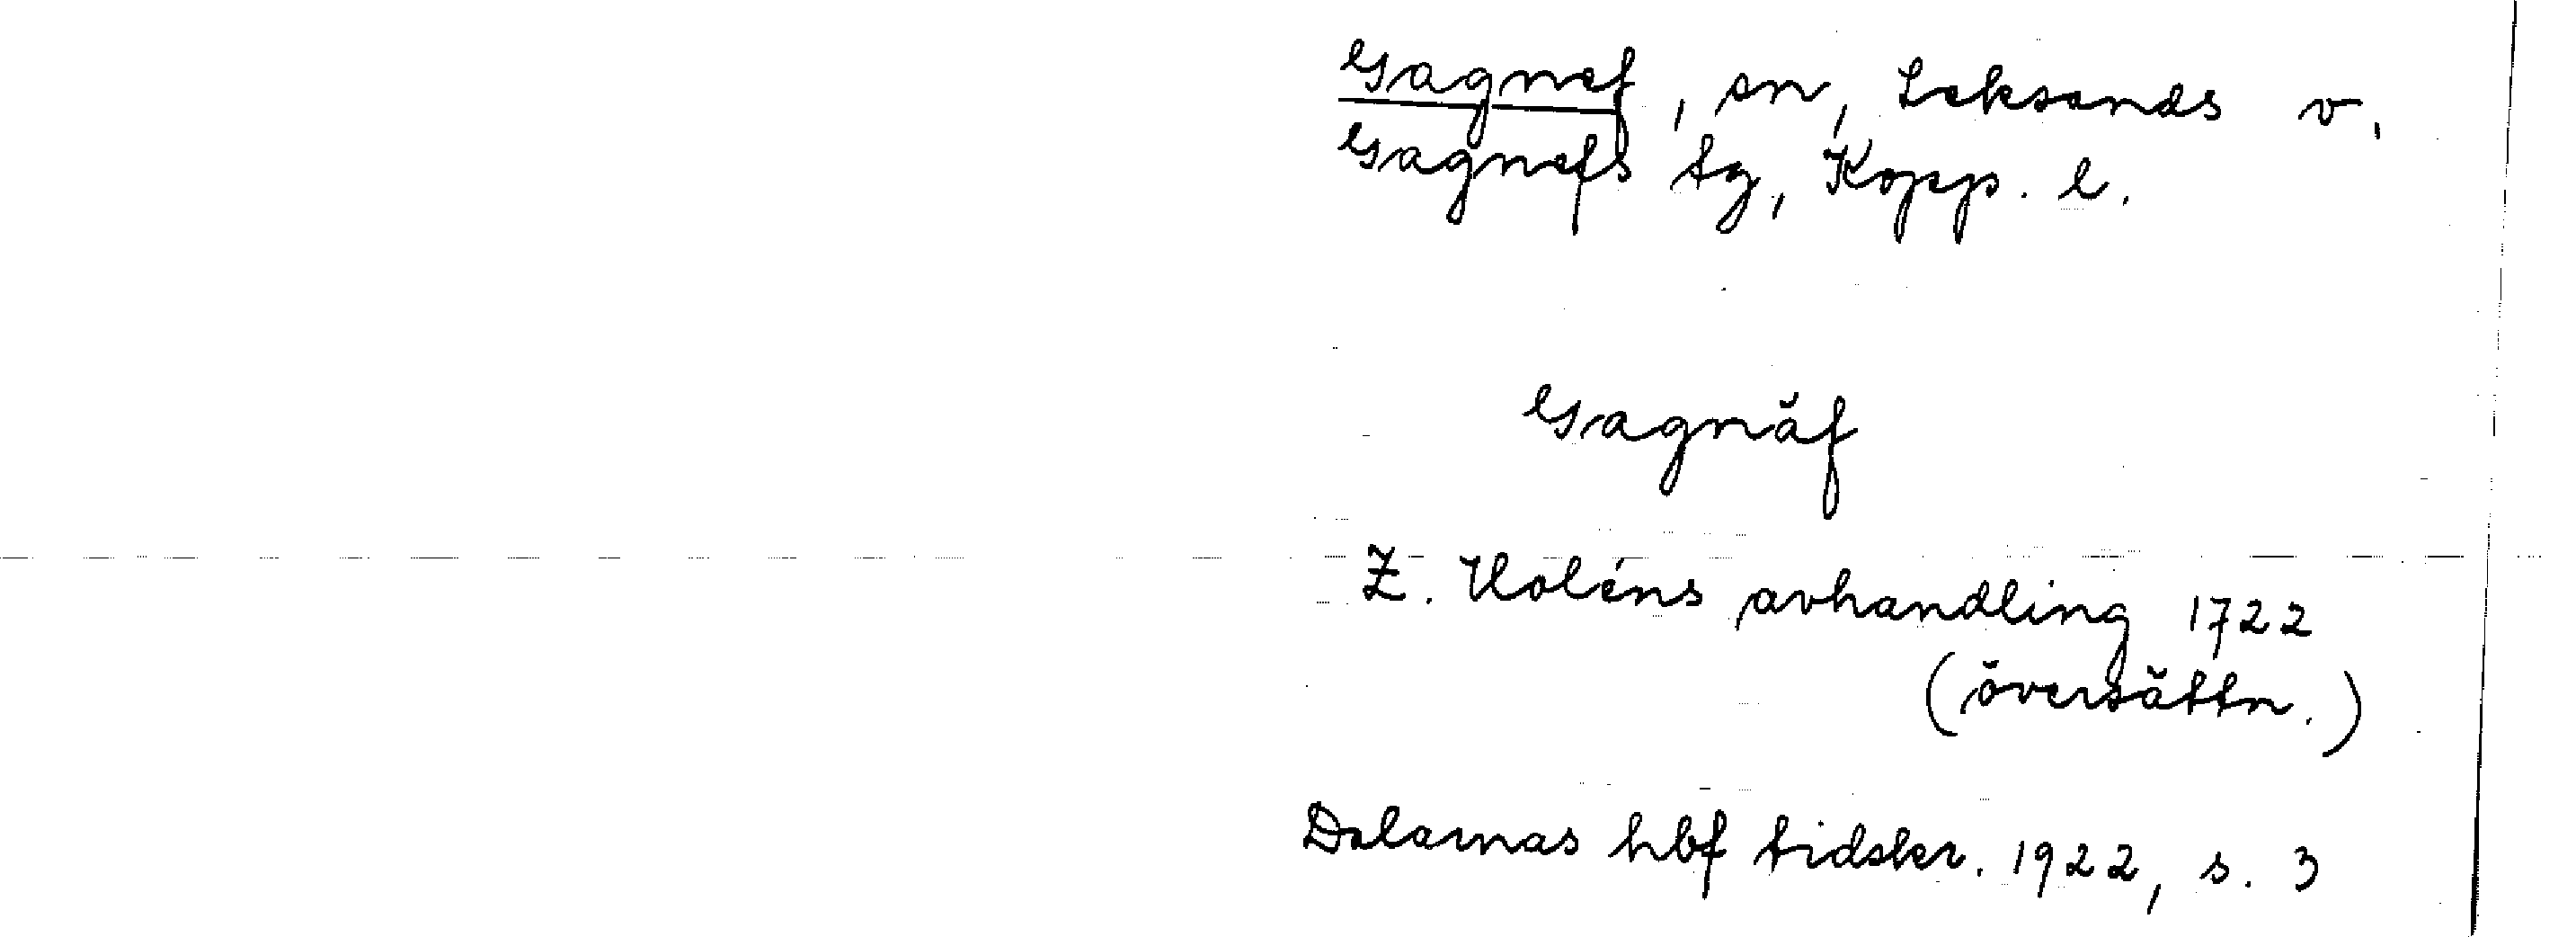 Gagnef, sn, Leksands v.
Gagnefs tg, Kopp. l.
Gagnäf
Z. Holéns avhandling 1722
(översättn.)
Dalarnas hbf tidskr. 1922, s. 3